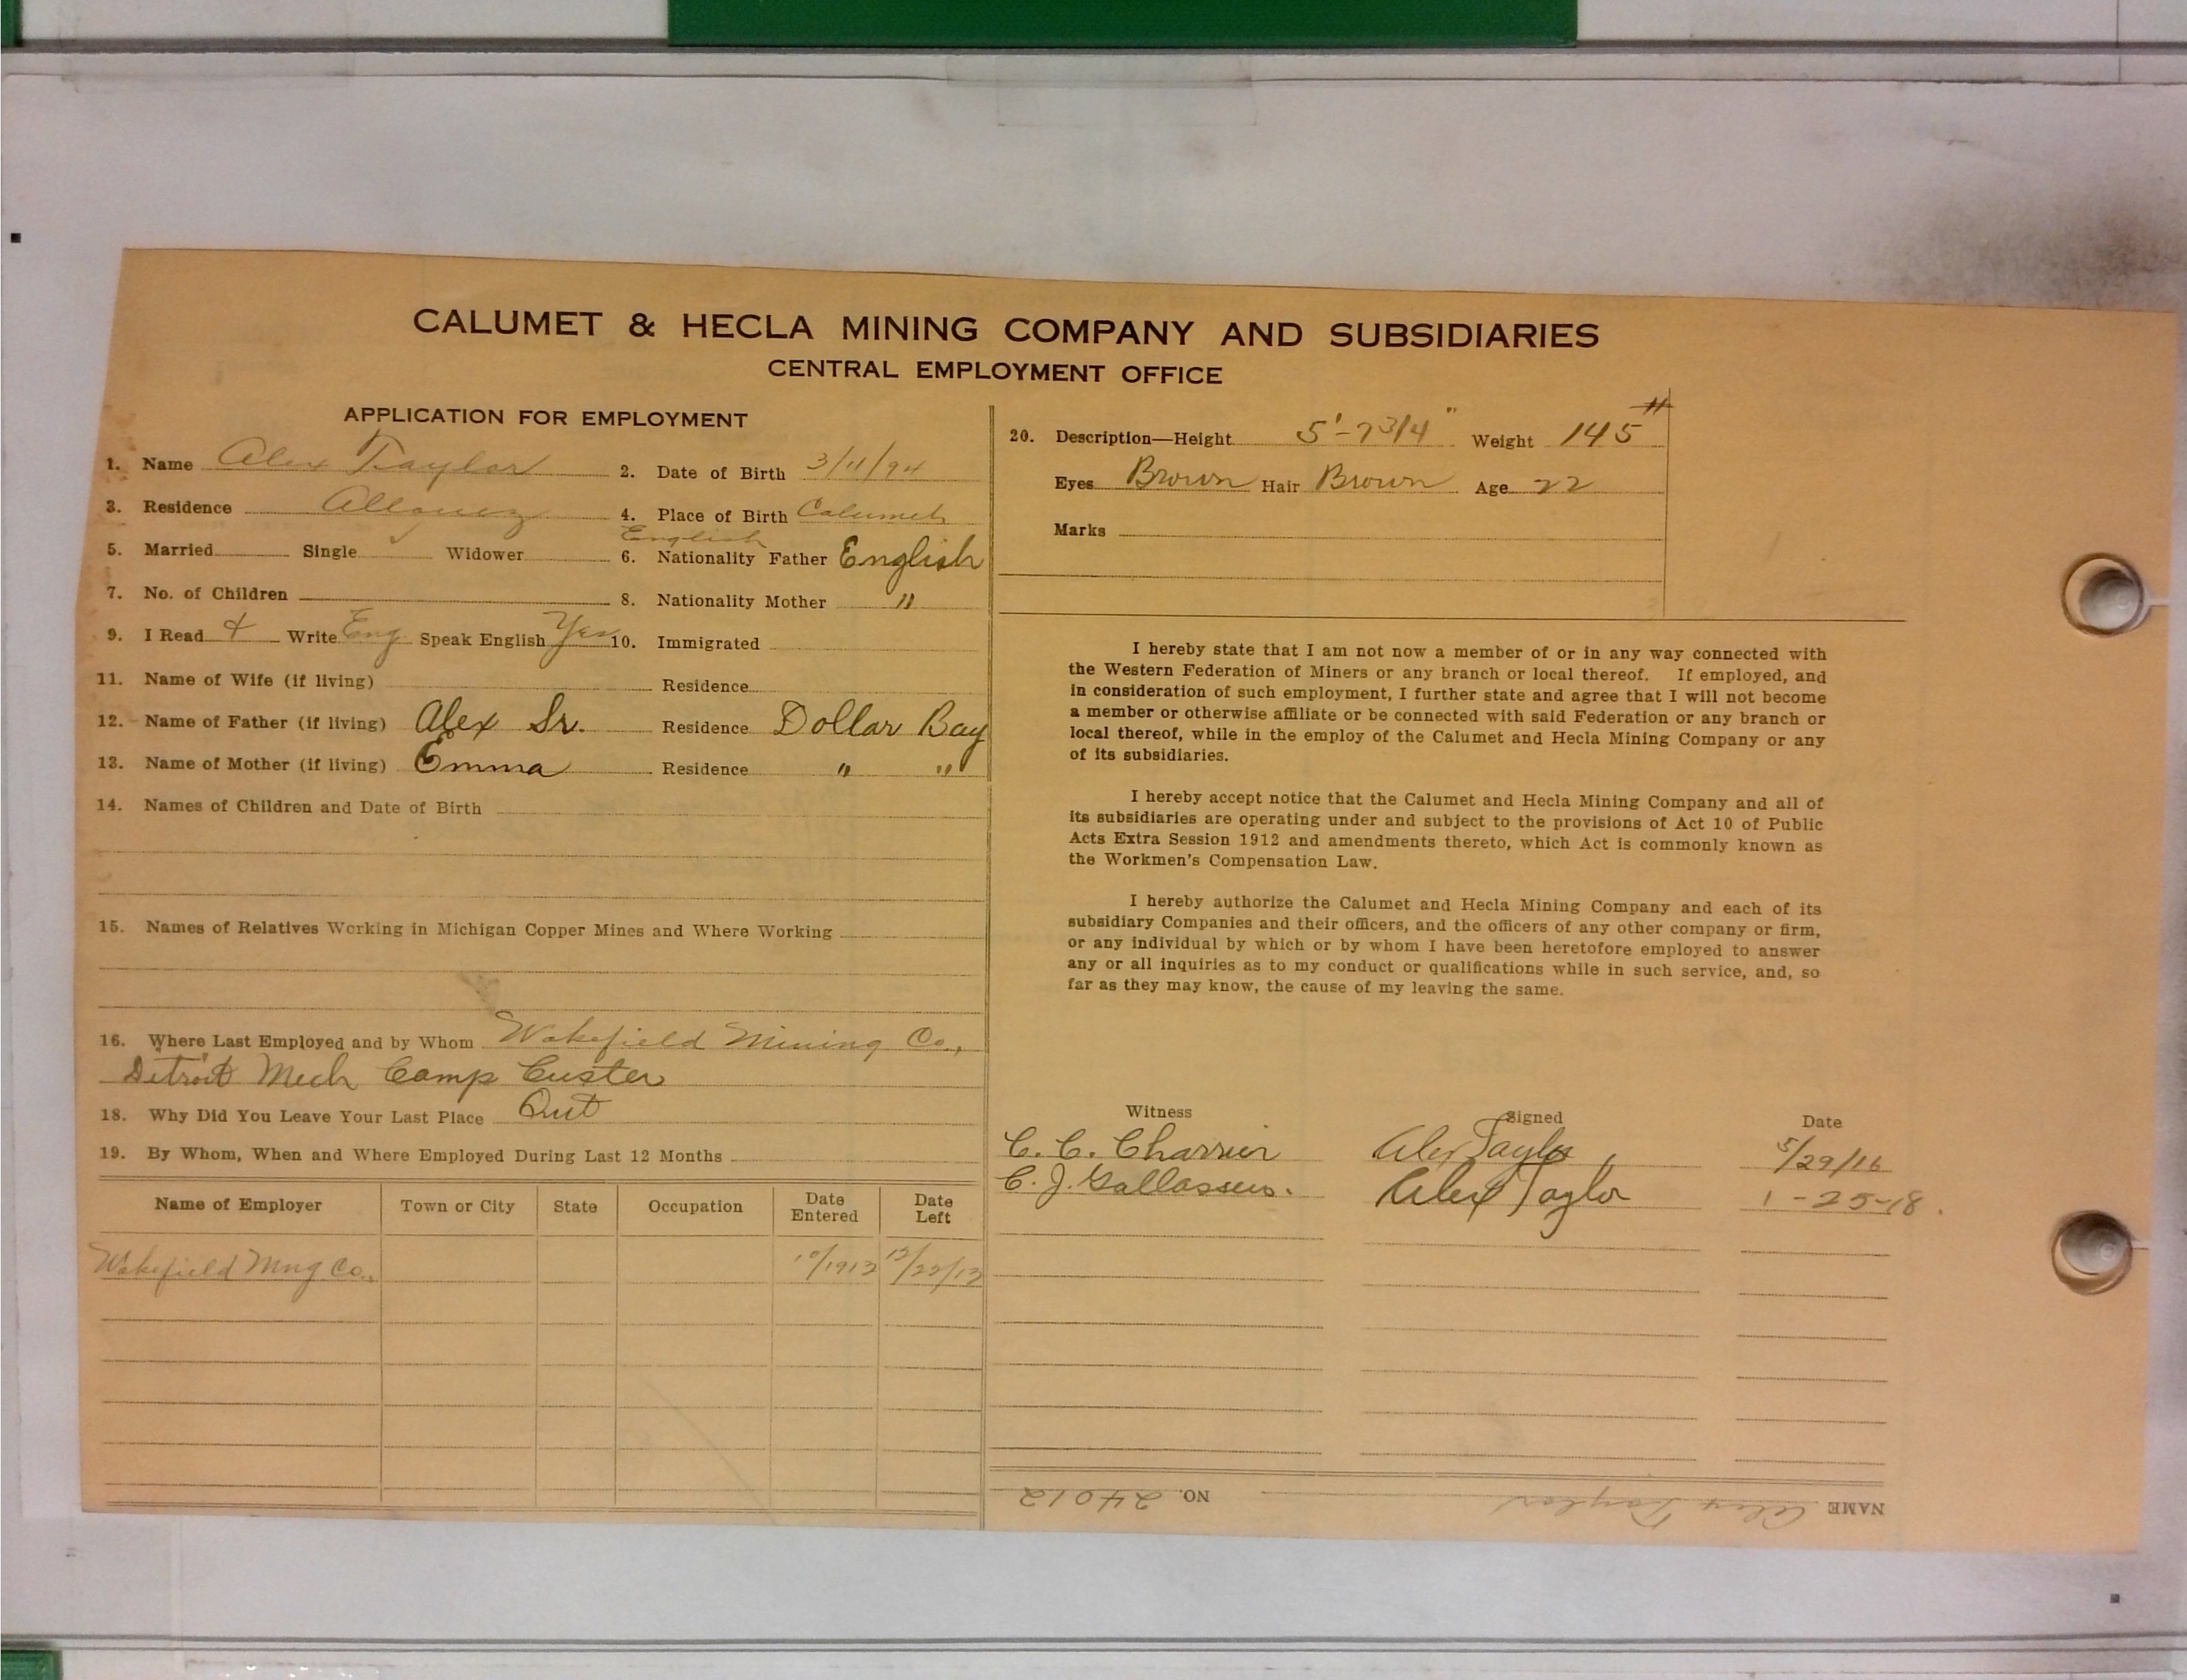 CALUMET & HECLA MINING COMPANY AND SUBSIDIARIES
CENTRAL EMPLOYMENT OFFICE
APPLICATION FOR EMPLOYMENT
1. Name Alex Taylor 2. Date of Birth 3/11/94
3. Residence Allouez 4. Place of Birth Calumet
English
5. Married Single ✓ Widower 6. Nationality Father English
7. No. of Children 8. Nationality Mother "
9. I Read & Write Eng Speak English Yes 10. Immigrated
11. Name of Wife (if living) Residence
12. Name of Father (if living) Alex Sr. Residence Dollar Bay
13. Name of Mother (if living) Emma Residence " "
14. Names of Children and Date of Birth
15. Names of Relatives Working in Michigan Copper Mines and Where Working
16. Where Last Employed and by Whom Wakefield Mining Co.,
Detroit Mich Camp Custer
18. Why Did You Leave Your Last Place Quit
19. By Whom, When and Where Employed During Last 12 Months
Name of Employer Town or City State Occupation Date Entered Date Left
Wakefield Mng Co.,
20. Description—Height 5'-7 3/4" Weight 145 #
Eyes Brown Hair Brown Age 22
Marks
I hereby state that I am not now a member of or in any way connected with
the Western Federation of Miners or any branch or local thereof. If employed, and
in consideration of such employment, I further state and agree that I will not become
a member or otherwise affiliate or be connected with said Federation or any branch or
local thereof, while in the employ of the Calumet and Hecla Mining Company or any
of its subsidiaries.
I hereby accept notice that the Calumet and Hecla Mining Company and all of
its subsidiaries are operating under and subject to the provisions of Act 10 of Public
Acts Extra Session 1912 and amendments thereto, which Act is commonly known as
the Workmen's Compensation Law.
I hereby authorize the Calumet and Hecla Mining Company and each of its
subsidiary Companies and their officers, and the officers of any other company or firm,
or any individual by which or by whom I have been heretofore employed to answer
any or all inquiries as to my conduct or qualifications while in such service, and, so
far as they may know, the cause of my leaving the same.
Witness Signed Date
C. C. Charrier Alex Taylor 5/29/16
C. J. Alex Taylor 1-25-18.
NAME Alex Taylor NO. 24012